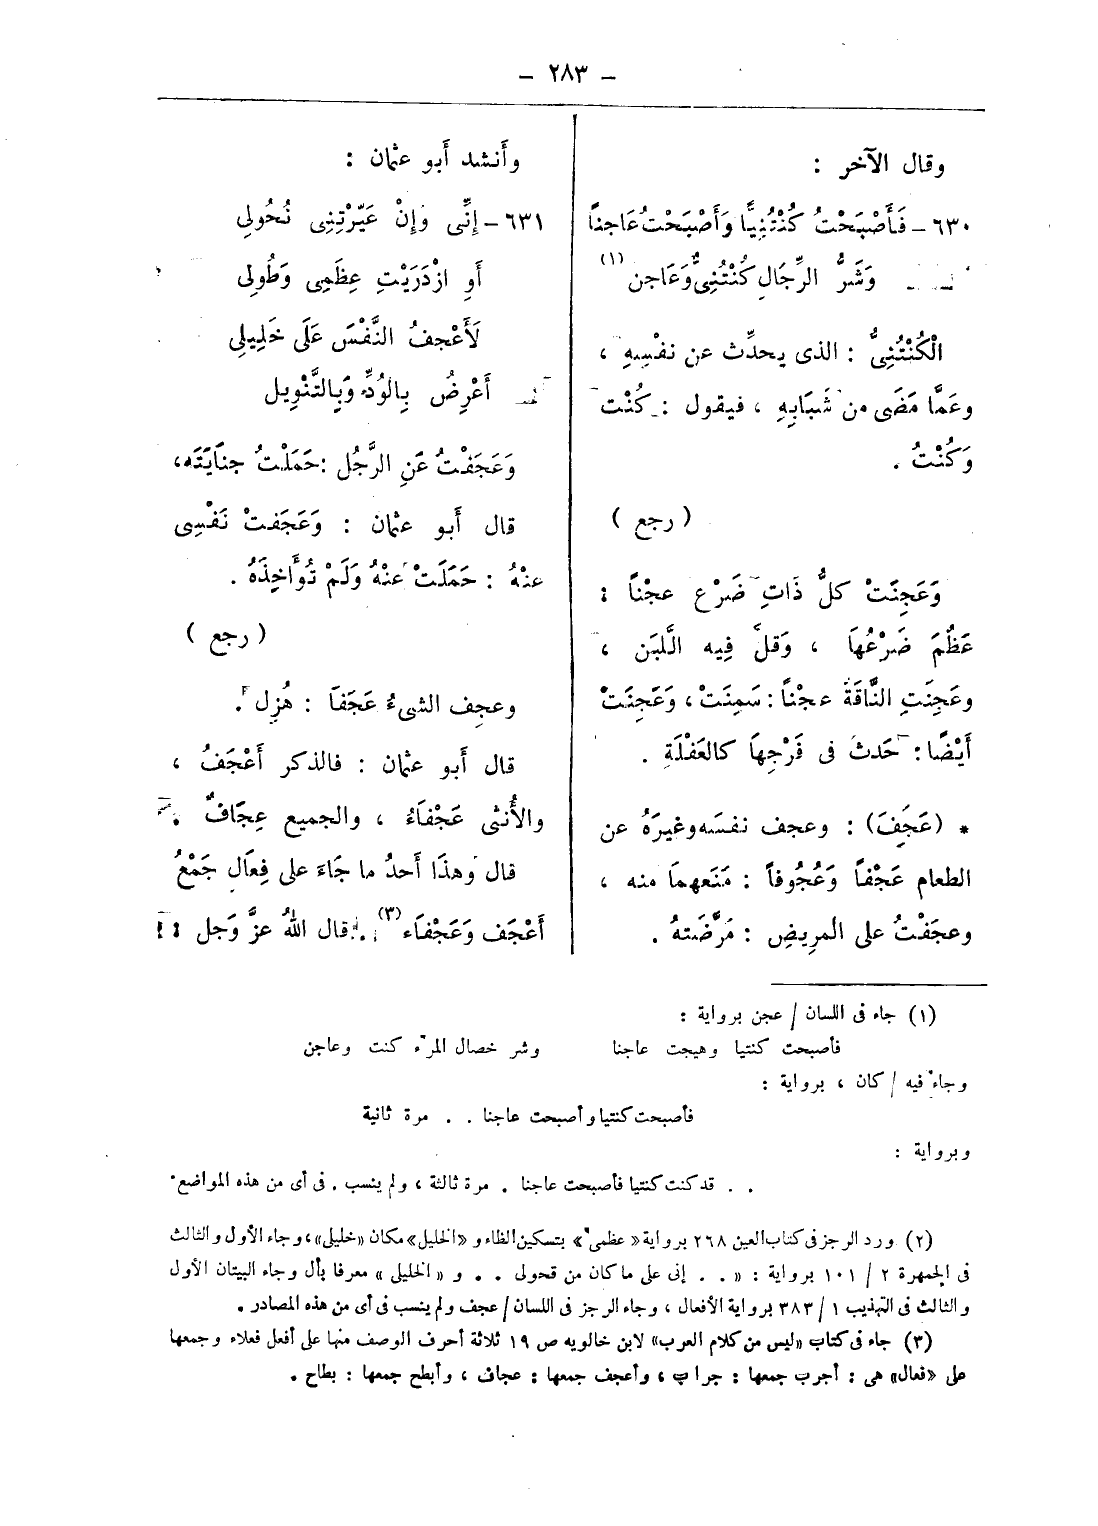 – ٢٨٣ –
وقال الآخر :
٦٣٠ – فَأَصْبَحْتُ كُنْتُنِيًّا وَأَصْبَحْتُ عَاجناً
وَشَرُّ الرِّجَالِ كُنْتُنِىٌّ وَعَاجن (١)
الْكُنْتُنِىُّ : الذى يحدِّث عن نفْسِهِ ،
وعَمَّا مَضَى من شَبَابِهِ ، فيقول : كُنْت
وَكُنْتُ .
( رجع )
وَعَجِنَتْ كلُّ ذَاتِ ضَرْع عجْناً :
عَظُمَ ضَرْعُهَا ، وَقلَّ فِيه الَّلبَن ،
وعَجِنَتِ النَّاقَةُ عجْناً : سَمِنَتْ ، وَعَجِنَتْ
أَيْضًا : حَدثَ فى فَرْجِهَا كالعَفْلَةِ .
* (عَجَفَ) : وعجف نفسَه وغيرَهُ عن
الطعام عَجْفاً وَعُجُوفاً : مَنَعهمَا منه ،
وعجَفْتُ على المرِيضِ : مَرَّضَتهُ .
وأَنشد أَبو عثمان :
٦٣١ – إِنِّى وَإِنْ عَيّرْتِنِى نُحُولِى
أَوِ ازْدَرَيْتِ عِظَمِى وَطُولِى
لَأَعْجفُ النَّفْسَ عَلَى خَلِيلِى
أَعْرِضُ بِالوُدِّ وَبِالتَّنْوِيل
وَعَجَفْتُ عَنِ الرَّجُل : حَمَلْتُ جنَايَتَه،
قال أَبو عثمان : وَعَجَفتْ نَفْسِى
عنْهُ : حَمَلَتْ عنْهُ وَلَمْ تُوَاخِذهُ .
( رجع )
وعجِف الشىءُ عَجَفَا : هُزِل .
قال أَبو عثمان : فالذكر أَعْجَفُ ،
والأُنثى عَجْفَاءُ ، والجميع عِجَافٌ .
قال وهذَا أَحدُ ما جَاءَ على فِعَال جَمْعُ
أَعْجَف وَعَجْفَاء (٣) . قال اللهُ عزَّ وَجل :
(١) جاء فى اللسان / عجن برواية :
فأصبحت كنتيا وهيجت عاجنا وشر خصال المرء كنت وعاجن
وجاء فيه / كان ، برواية :
فأصبحت كنتيا وأصبحت عاجنا . . مرة ثانية
وبرواية :
. . قد كنت كنتيا فأصبحت عاجنا . مرة ثالثة ، ولم ينسب . فى أى من هذه المواضع .
(٢) ورد الرجز فى كتاب العين ٢٦٨ برواية « عظمى » بتسكين الظاء و «الخليل» مكان «خليلى» ، وجاء الأول والثالث
فى الجمهرة ٢ / ١٠١ برواية : « . . إنى على ما كان من قحولى . . و « الخليلى » معرفا بأل وجاء البيتان الأول
والثالث فى التهذيب ١ / ٣٨٣ برواية الأفعال ، وجاء الرجز فى اللسان / عجف ولم ينسب فى أى من هذه المصادر .
(٣) جاء فى كتاب «ليس من كلام العرب» لابن خالويه ص ١٩ ثلاثة أحرف الوصف منها على أفعل فعلاء وجمعها
على «فعال» هى : أجرب جمعها : جراب ، وأعجف جمعها : عجاف ، وأبطح جمعها : بطاح .